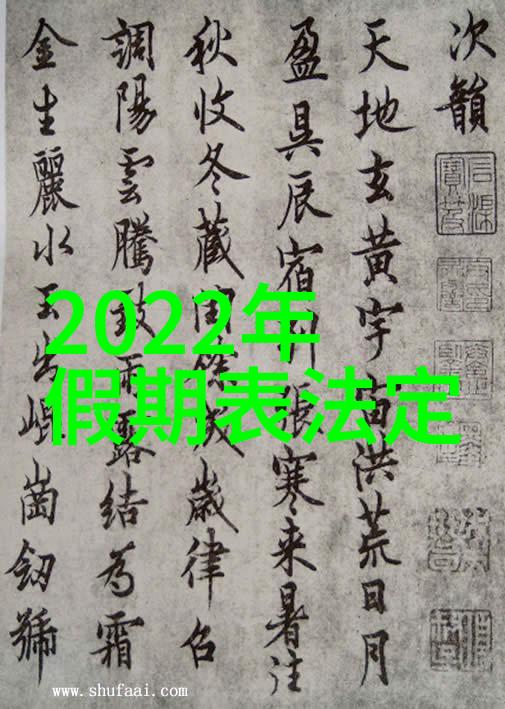 次韻
天地玄黃宇宙洪荒日月
盈昃辰宿列張寒来暑往
秋收冬藏閏餘成歲律召
調陽雲騰致雨露結為霜
金生麗水玉出崐崗劒號
2022年
假期表法定
www.shufaai.com